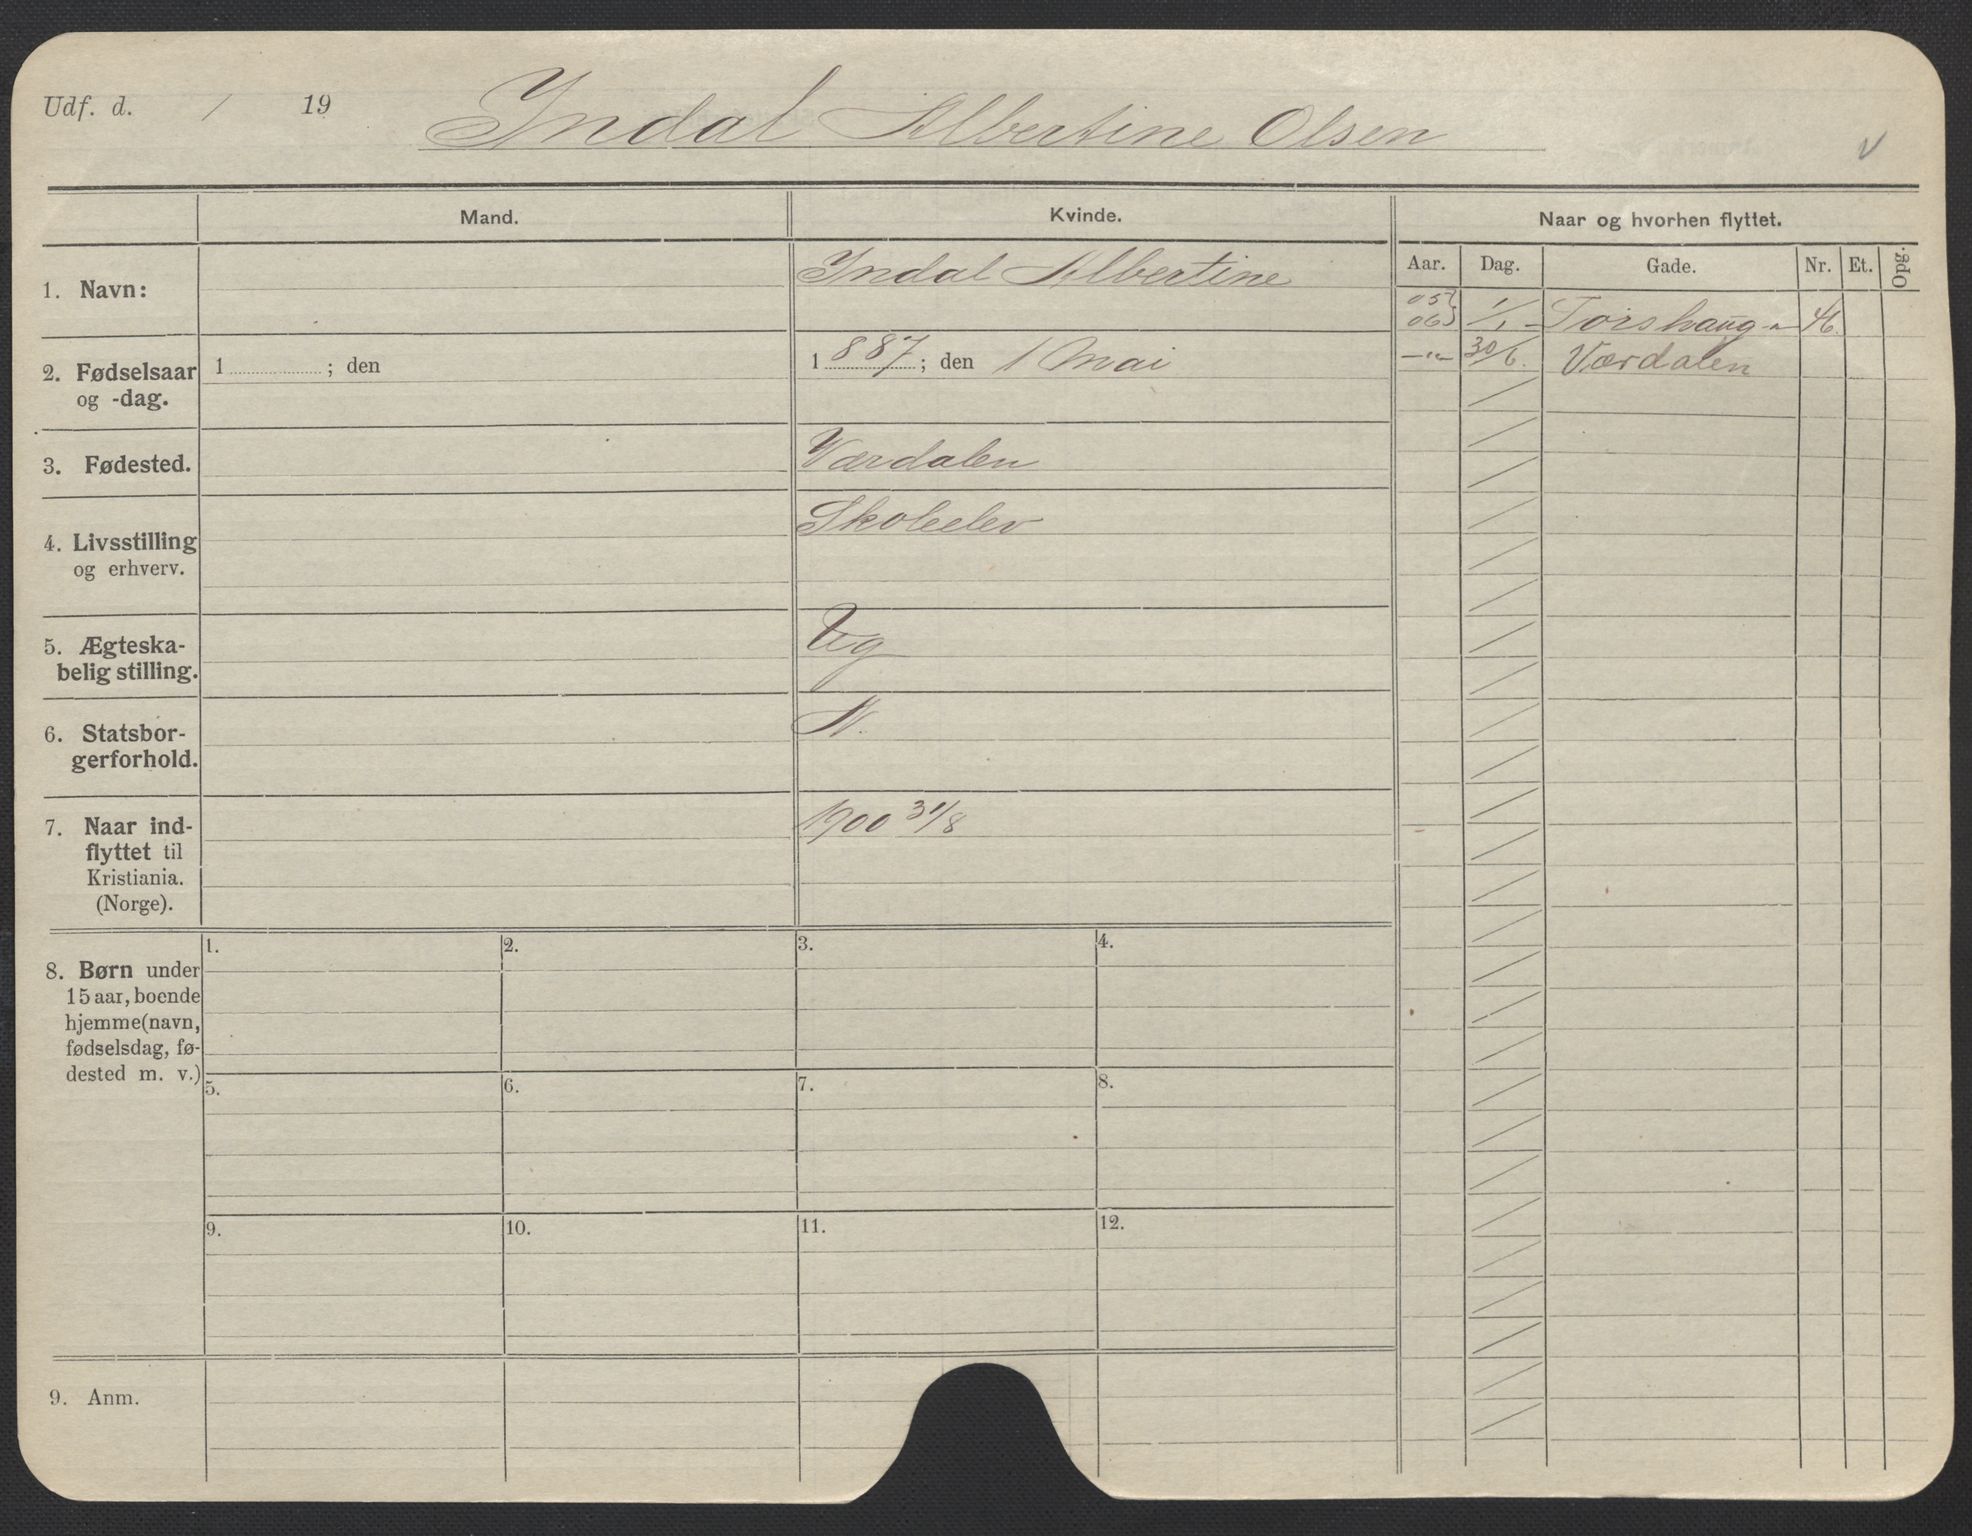 Udf. d. / 19
Indal Albertine Olsen
v
Mand.
Kvinde.
Naar og hvorhen flyttet.
Aar. Dag. Gade. Nr. Et. Opg.
1. Navn:
Indal Albertine
05 } 1/1 Torshaug
06
2. Fødselsaar
og -dag.
1 ; den
1887; den 1 Mai
—"— 30/6. Værdalen
3. Fødested.
Værdalen
4. Livsstilling
og erhverv.
Skoleelev
5. Ægteska-
belig stilling.
Ug
6. Statsbor-
gerforhold.
N.
7. Naar ind-
flyttet til
Kristiania.
(Norge).
1900 31/8
8. Børn under
15 aar, boende
hjemme (navn,
fødselsdag, fø-
dested m. v.)
1. 2. 3. 4.
5. 6. 7. 8.
9. 10. 11. 12.
9. Anm.